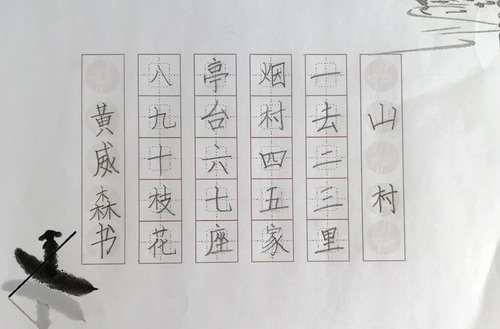 山村
一去二三里
烟村四五家
亭台六七座
八九十枝花
黄威森书